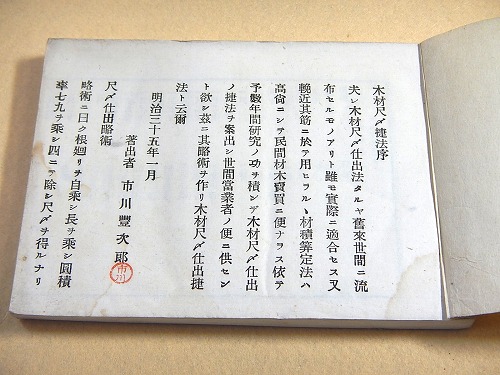 木材尺〆捷法序
夫レ木材尺〆仕出法タルヤ舊來世間ニ流
布セルモノアリト雖モ實際ニ適合セス又
輓近其筋ニ於テ用ヒラルヽ材積算定法ハ
高尚ニシテ民間材木賣買ニ便ナラス依テ
予數年間研究ノ功ヲ積ンデ木材尺〆仕出
ノ捷法ヲ案出シ世間當業者ノ便ニ供セン
ト欲シ茲ニ其略術ヲ作リ木材尺〆仕出捷
法ト云爾
明治三十五年一月
著出者 市川豐次郎
市川
尺〆仕出略術
略術ニ曰ク根廻リヲ自乘シ長ヲ乘シ圓積
率七九ヲ乘シ四ニテ除シ尺〆ヲ得ルナリ